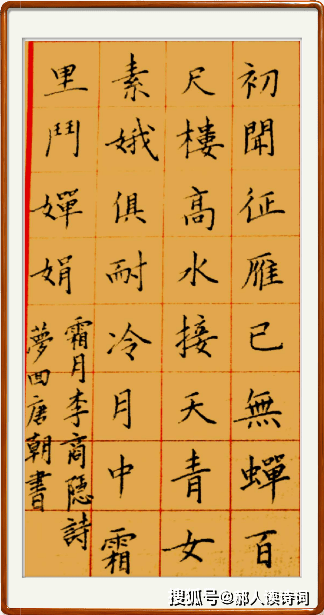 初聞征雁已無蟬百
尺樓高水接天青女
素娥俱耐冷月中霜
里鬥嬋娟
霜月李商隱詩
夢回唐朝書
搜狐号@郝人读诗词